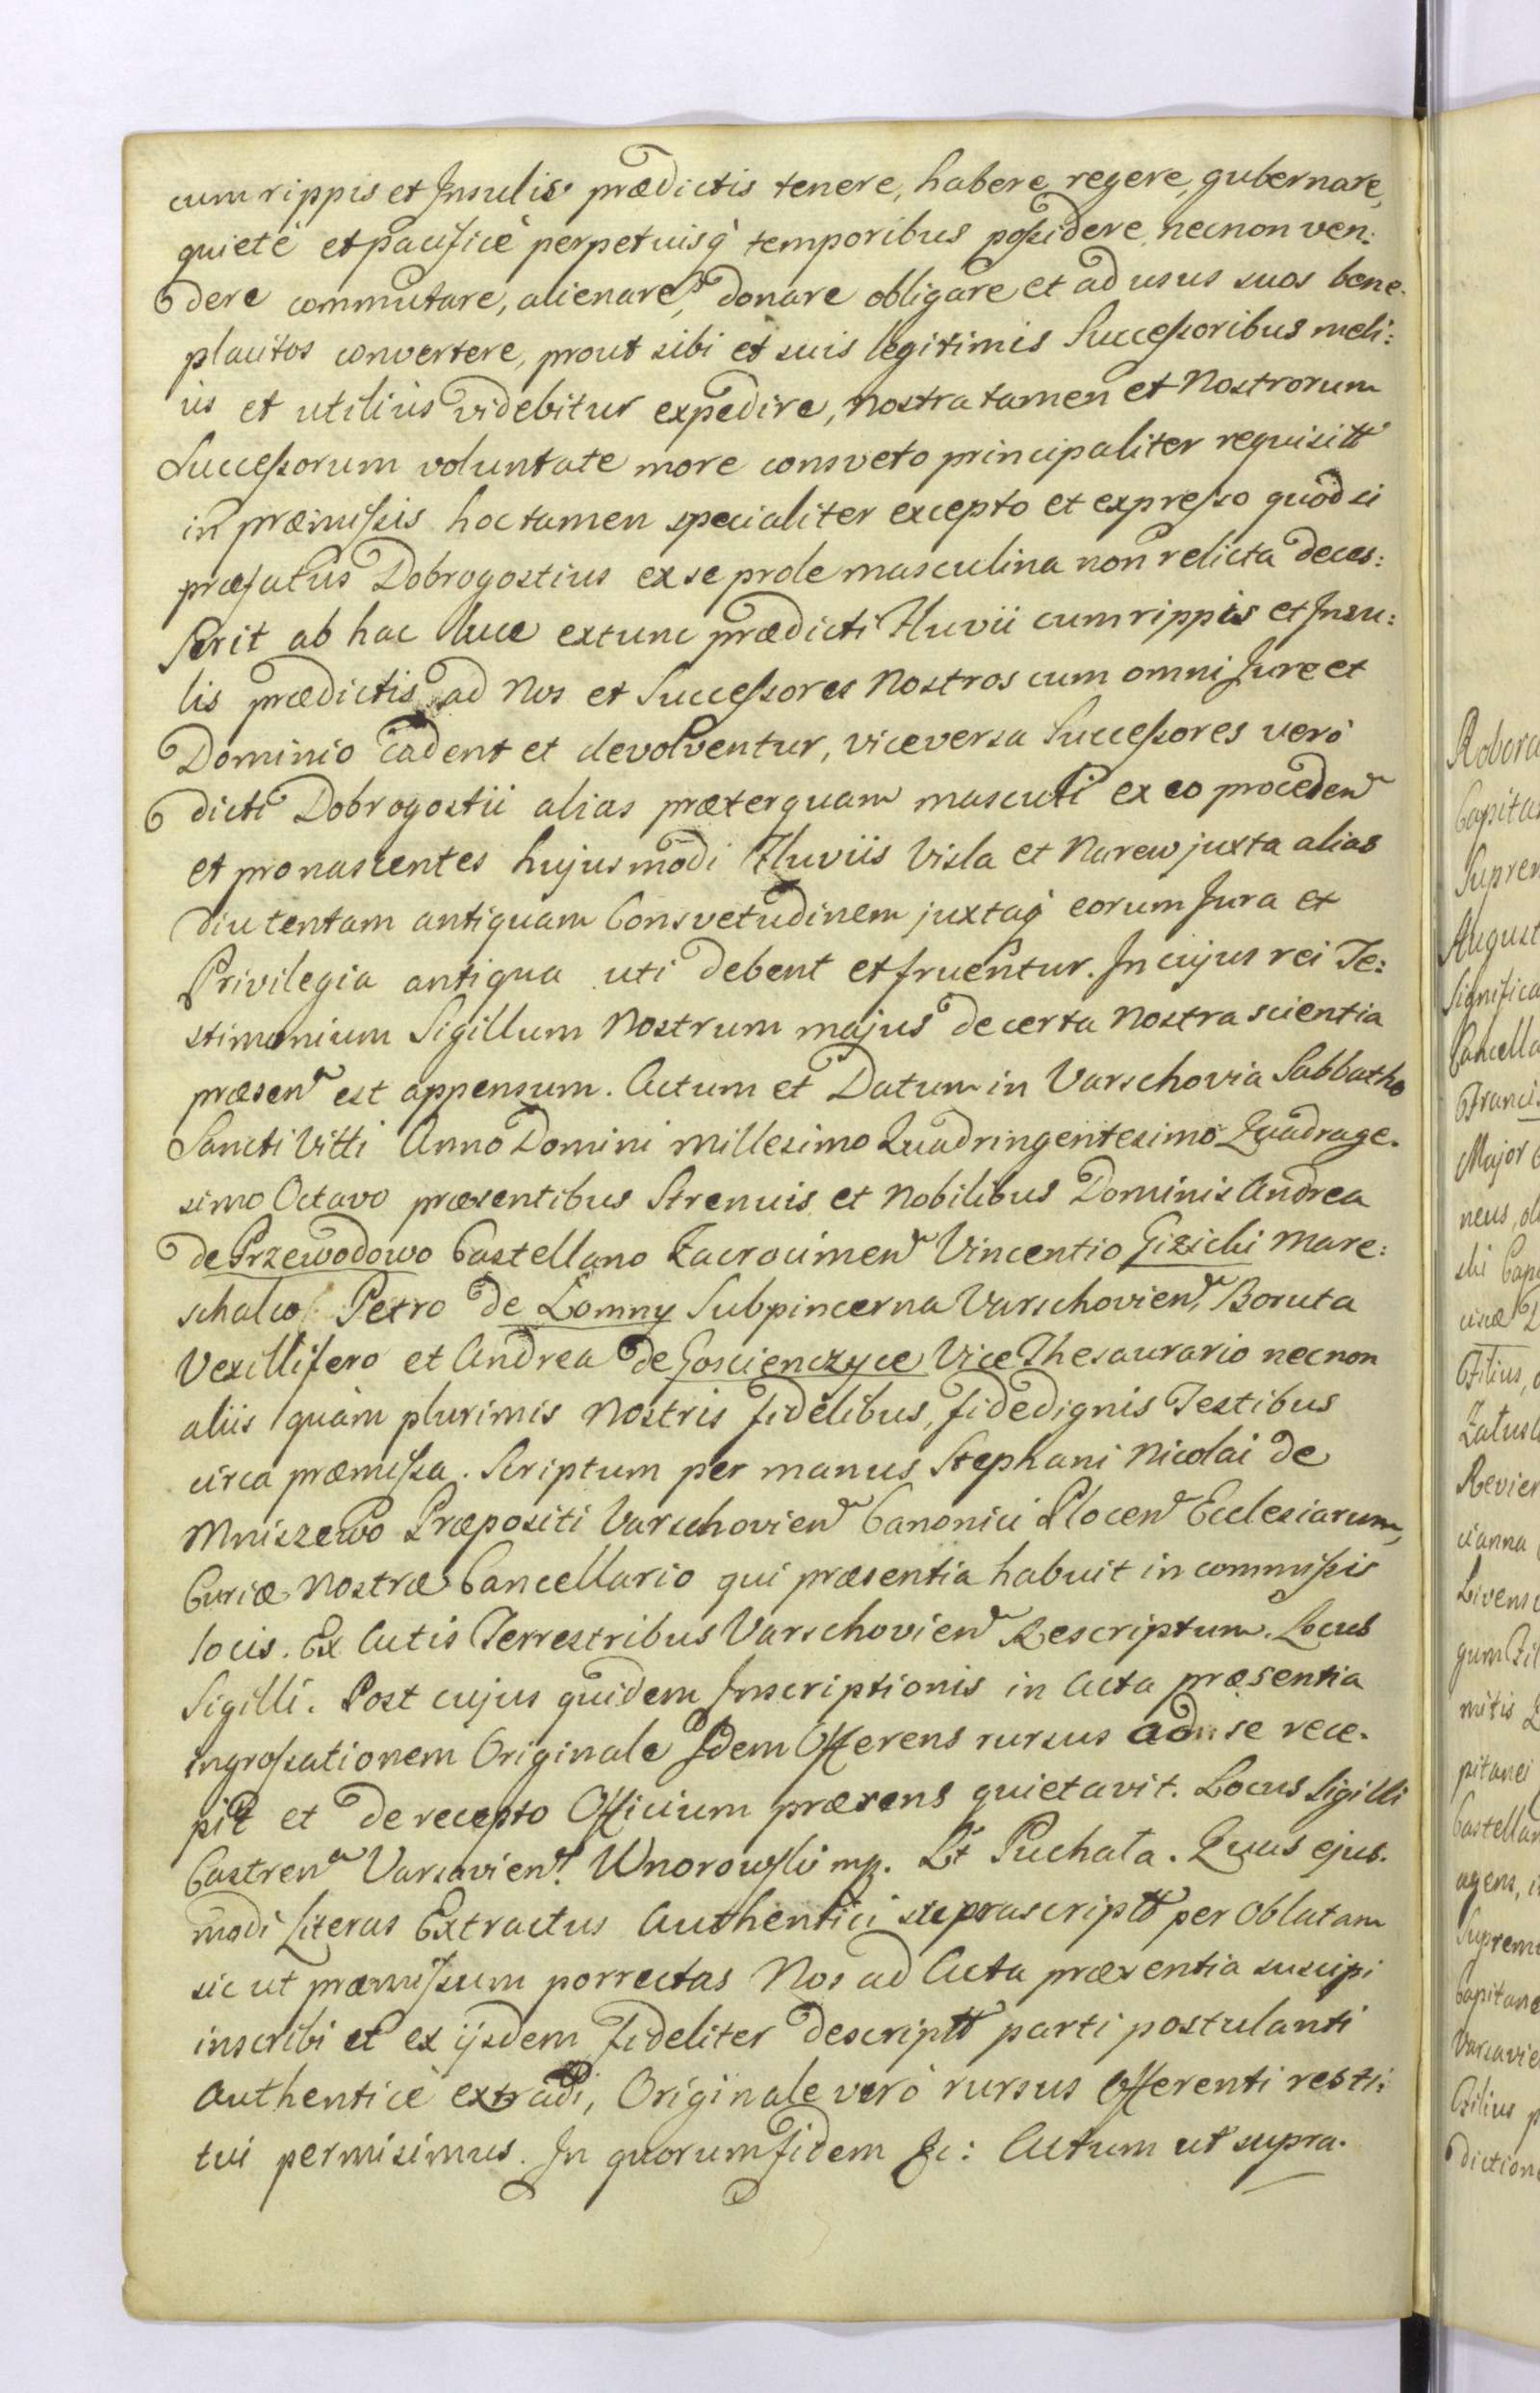 cum rippis et Insulis prædictis tenere, habere regere, gubernare,
quietè et pacificè perpetuisq́ temporibus possidere, necnon ven:
dere commutare, alienare, donare obligare et ad usus suos bene-
placitos convertere, prout sibi et suis legitimis Successoribus meli:
us et utiliùs videbitur expedire, nostra tamen et Nostrorum
Successorum voluntate more consveto principaliter requisitt
in præmissis hoc tamen specialiter excepto et expresso quod si
præfatus Dobrogostius ex se prole masculina non relicta deces:
serit ab hac luce extunc prædicti Fluvii cum rippis et Insu:
lis prædictis ad Nos et Successores Nostros cum omni Jure et
Dominio cadent et devolventur, viceversa Successores verò
dicti Dobrogostii alias præterquam masculi ex eo proceden
et pronascentes hujusmodi Fluviis Visla et Narew juxta alias
diu tentam antiquam Consvetudinem juxtaq́ eorum Jura et
Privilegia antiqua uti debent et fruentur. In cujus rei Te:
stimonium Sigillum Nostrum majus de certa Nostra scientia
præsen est appensum. Actum et Datum in Varschovia Sabbatho
Sancti Vitti Anno Domini Millesimo Quadringentesimo Quadrage-
simo Octavo præsentibus Strenuis et Nobilibus Dominis Andrea
de Przewodowo Castellano Zacrocimen Vincentio Gizichi Mare:
schalco Petro de Lomny Subpincerna Varschovien, Boruta
Vexillifero et Andrea de Goscienczyce Vice Thesaurario necnon
aliis quàm plurimis Nostris fidelibus, fidedignis Testibus
circa præmissa. Scriptum per manus Stephani Nicolai de
Mniszewo Præpositi Varschovien Canonici Plocen Ecclesiarum,
Curiæ Nostræ Cancellario qui præsentia habuit in commissis
locis. Ex Actis Terrestribus Varschovien Rescriptum. Locus
Sigilli. Post cujus quidem Inscriptionis in Acta præsentia
ingrossationem Originale Idem Offerens rursus ad se rece-
pit et de recepto Officium præsens quietavit. Locus Sigilli
Castren Varsavien. Wnorowski mp. Lt Puchata. Quas ejus-
modi Literas Extractus Authentici suprascriptt per Oblatam
sic ut præmissum porrectas Nos ad Acta præsentia suscipi
inscribi et ex ijsdem fideliter descriptt parti postulanti
authenticè extradi, Originale verò rursus Offerenti resti:
tui permisimus. In quorum fidem &c: Actum ut supra.
Robora
Capita
Suprem
August
Significa
Cancella
Francis
Major
neus,
ski Cap
Filius,
Zatus
Revier
cianna
Livens
gum Fil
mitis
pitanei
Castellan
agens,
Suprem
Capitane
Varsavie
Filius p
diction